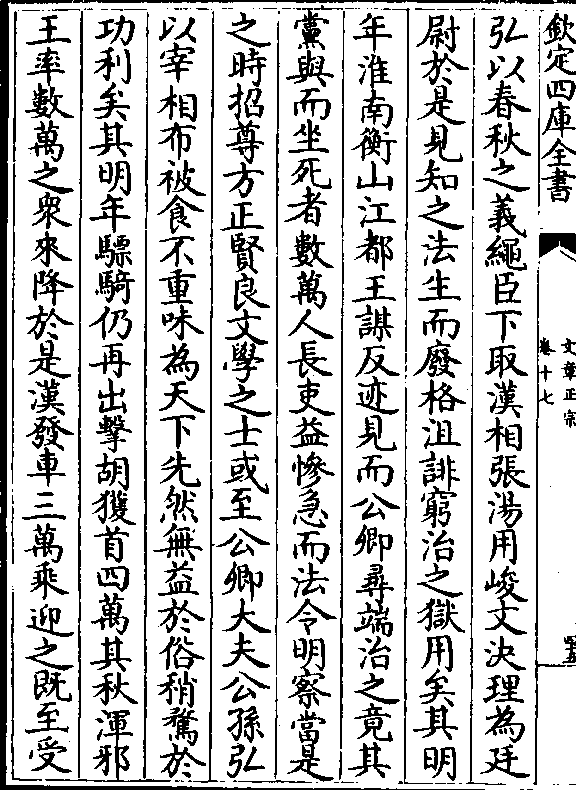 欽定四庫全書
文章正宗
卷十七
弘以春秋之義繩臣下取漢相張湯用峻文決理為廷
尉於是見知之法生而廢格沮誹窮治之獄用矣其明
年淮南衡山江都王謀反迹見而公卿尋端治之竟其
黨與而坐死者數萬人長吏益慘急而法令明察當是
之時招尊方正賢良文學之士或至公卿大夫公孫弘
以宰相布被食不重味為天下先然無益於俗稍騖於
功利矣其明年驃騎仍再出擊胡獲首四萬其秋渾邪
王率數萬之衆來降於是漢發車三萬乘迎之既至受